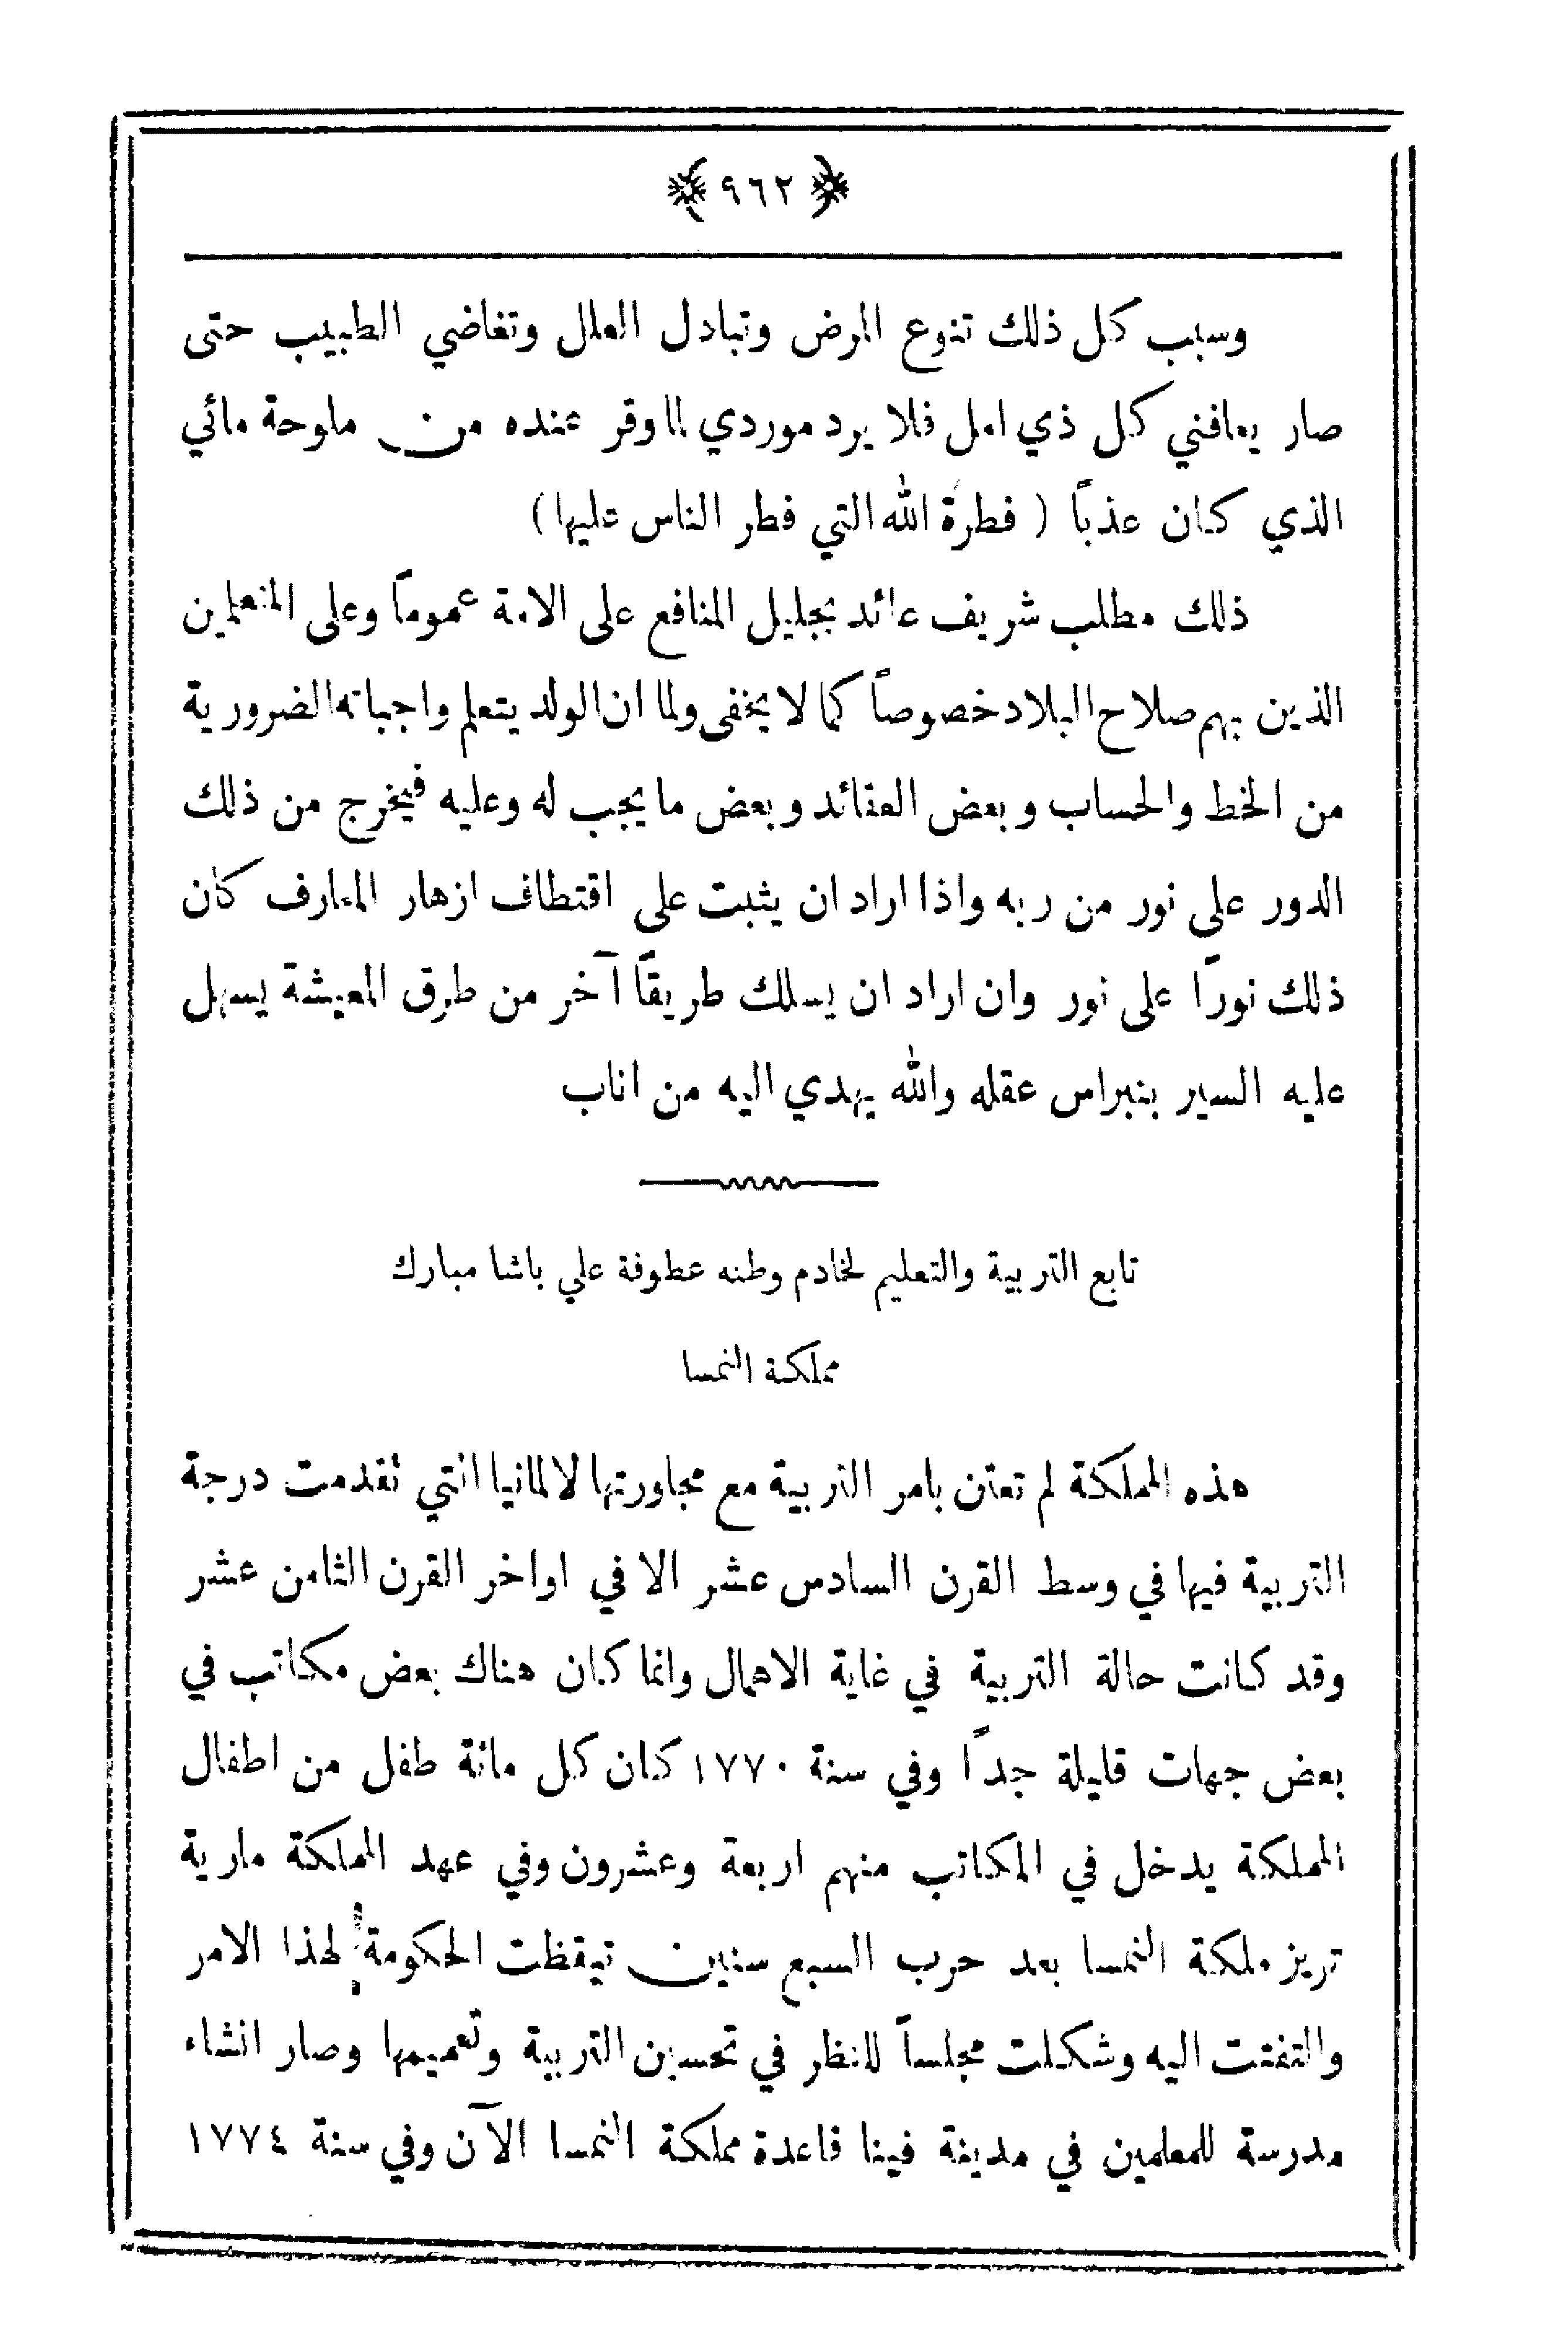 ﴿ ٩٦٢ ﴾
وسبب كل ذلك تنوع المرض وتبادل العلل وتغاضي الطبيب حتى
صار يعافني كل ذي امل فلا يرد موردي لما وقر عنده من ملوحة مائي
الذي كان عذباً ( فطرة الله التي فطر الناس عليها )
ذلك مطلب شريف عائد بجليل المنافع على الامة عموماً وعلى المتعلمين
الذين بهم صلاح البلاد خصوصاً كما لا يخفى ولما ان الولد يتعلم واجباته الضرورية
من الخط والحساب وبعض العقائد وبعض ما يجب له وعليه فيخرج من ذلك
الدور على نور من ربه واذا اراد ان يثبت على اقتطاف ازهار المعارف كان
ذلك نوراً على نور وان اراد ان يسلك طريقاً آخر من طرق المعيشة يسهل
عليه السير بنبراس عقله والله يهدي اليه من اناب
تابع التربية والتعليم لخادم وطنه عطوفة علي باشا مبارك
مملكة النمسا
هذه المملكة لم تعتن بامر التربية مع مجاورتها لالمانيا التي تقدمت درجة
التربية فيها في وسط القرن السادس عشر الا في اواخر القرن الثامن عشر
وقد كانت حالة التربية في غاية الاهمال وانما كان هناك بعض مكاتب في
بعض جهات قليلة جداً وفي سنة ١٧٧٠ كان كل مائة طفل من اطفال
المملكة يدخل في المكاتب منهم اربعة وعشرون وفي عهد الملكة مارية
تريز ملكة النمسا بعد حرب السبع سنين تيقظت الحكومة لهذا الامر
والتفتت اليه وشكلت مجلساً للنظر في تحسين التربية وتعميمها وصار انشاء
مدرسة للمعلمين في مدينة فينا قاعدة مملكة النمسا الآن وفي سنة ١٧٧٤